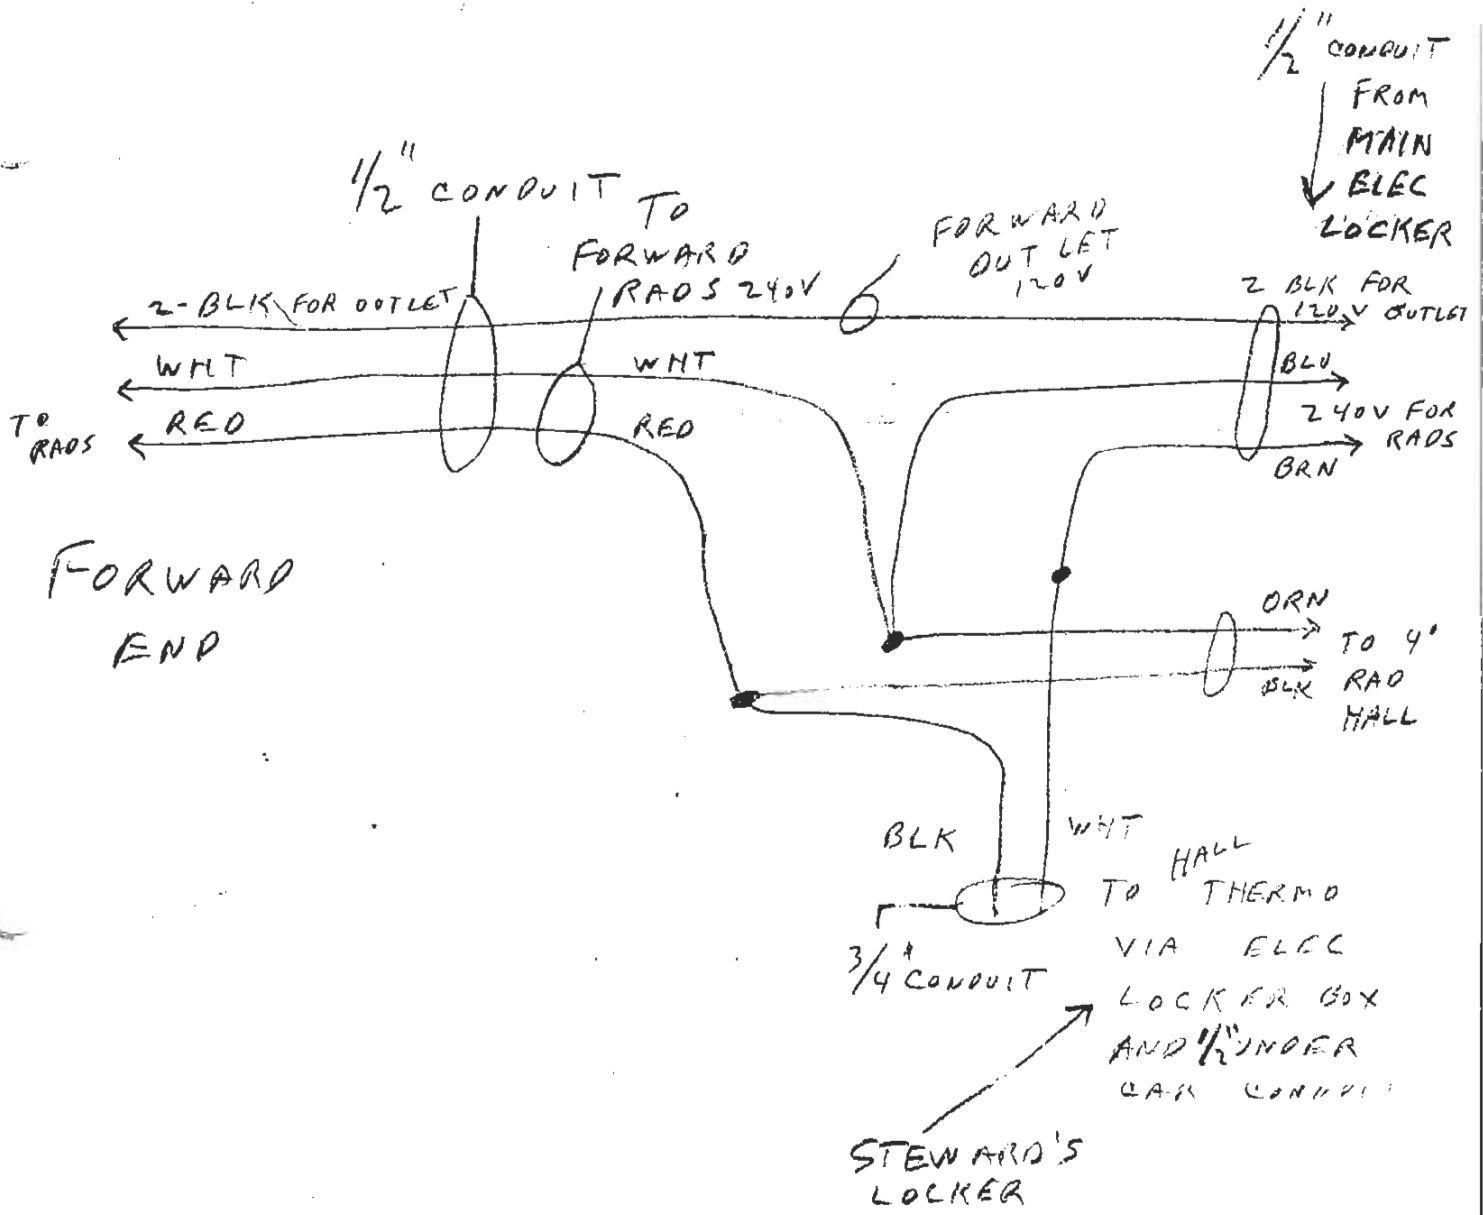 1/2" CONDUIT
FROM
MAIN
ELEC
LOCKER
1/2" CONDUIT
TO
FORWARD
RADS 240V
FORWARD
OUTLET
120V
2-BLK FOR OUTLET
2 BLK FOR
120V OUTLET
WHT
WHT
BLU
TO
RADS
RED
RED
240V FOR
RADS
BRN
FORWARD
END
ORN
BLK
TO 4'
RAD
HALL
BLK
WHT
3/4" CONDUIT
TO HALL
THERMO
VIA ELEC
LOCKER BOX
AND 1/2" UNDER
CAR CONDUIT
STEWARD'S
LOCKER